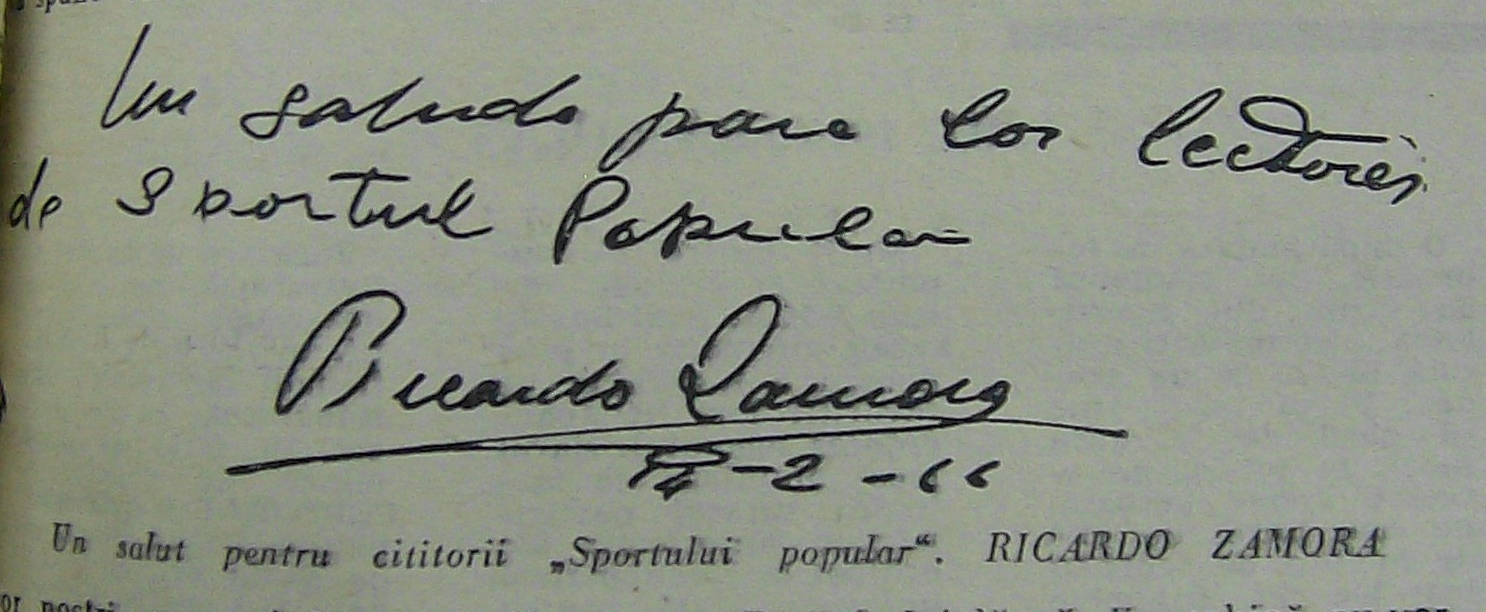 Un saludo para los lectores
de Sportul Popular
Ricardo Zamora
-2-66
Un salut pentru cititorii „Sportului popular“. RICARDO ZAMORA